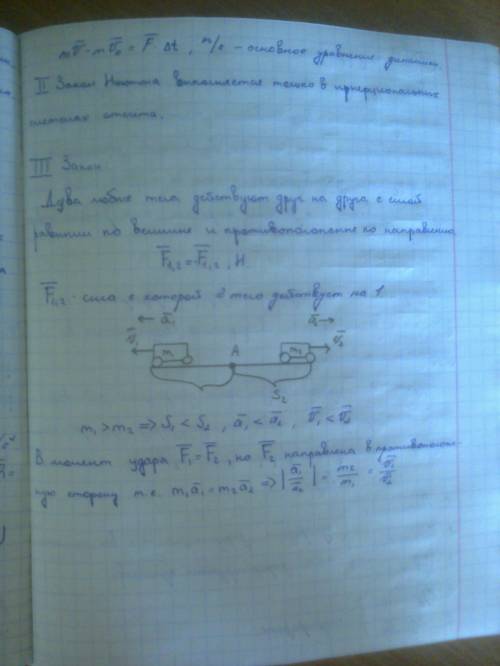 mv̅ - mv̅₀ = F̅ Δt, м/с - основное уравнение динамики
II Закон Ньютона выполняется только в инерциональных
системах отсчета.
III Закон
Два любые тела действуют друг на друга с силой
равными по величине и противоположене по направлению
F̅₁,₂ = F̅₁,₂, Н
F̅₁,₂ - сила с которой 2 тело действует на 1
← a̅₁ a̅₂ →
v̅₁ m₁ A m₂ v̅₂
S₂
m₁ > m₂ => S₁ < S₂, a̅₁ < a̅₂, v̅₁ < v̅₂
В момент удара F̅₁ = F̅₂, но F̅₂ направлена в противополож-
ную сторону т.е. m₁a̅₁ = m₂a̅₂ => |a̅₁/a̅₂| = m₂/m₁ = v̅₁/v̅₂